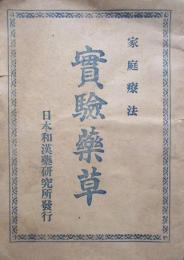 家庭療法
實驗藥草
日本和漢藥研究所發行